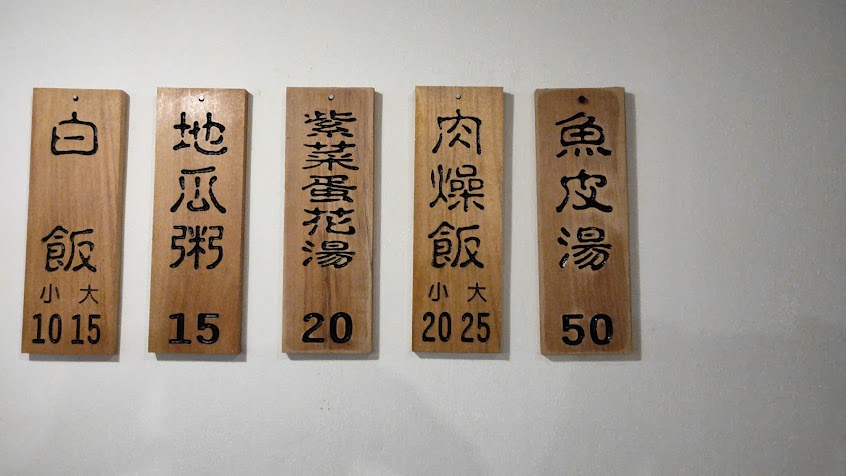 白飯
小 大
10 15
地瓜粥
15
紫菜蛋花湯
20
肉燥飯
小 大
20 25
魚皮湯
50